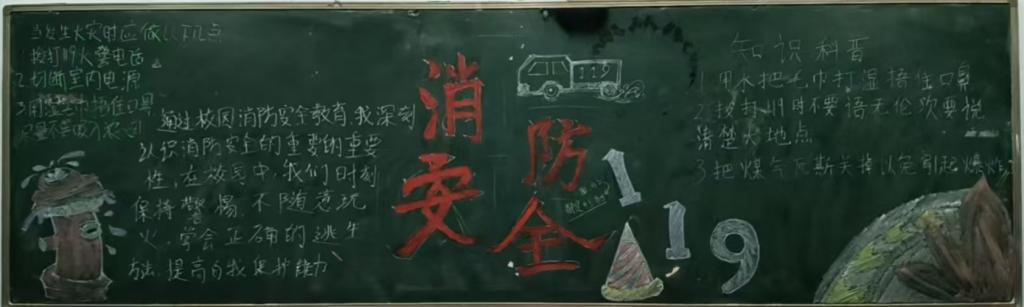 当发生火灾时应做以下几点
1.拨打119火警电话
2.切断室内电源
3.用湿毛巾捂住口鼻
通过校园消防安全教育,我深刻
认识消防安全的重要的重要
性,在放员中,我们时刻
保持警惕,不随意玩
火,学会正确的逃生
方法,提高自我保护能力
消
防
安
全
119
119
知识科普
1.用水把毛巾打湿捂住口鼻
2.拨打119时不要语无伦次要说
清楚火地点
3.把煤气瓦斯关掉以免引起爆炸